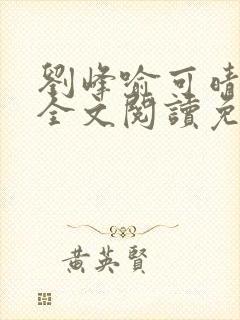 劉峰喻可晴
全文閱讀免
黃英賢